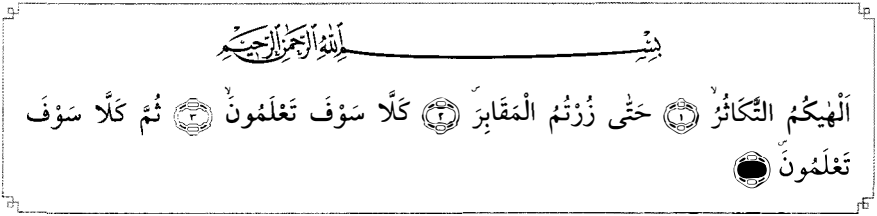 بِسْمِ اللهِ الرَّحْمٰنِ الرَّحِيْمِ
اَلْهٰىكُمُ التَّكَاثُرُۙ ۝١ حَتّٰى زُرْتُمُ الْمَقَابِرَۗ ۝٢ كَلَّا سَوْفَ تَعْلَمُونَۙ ۝٣ ثُمَّ كَلَّا سَوْفَ
تَعْلَمُونَۗ